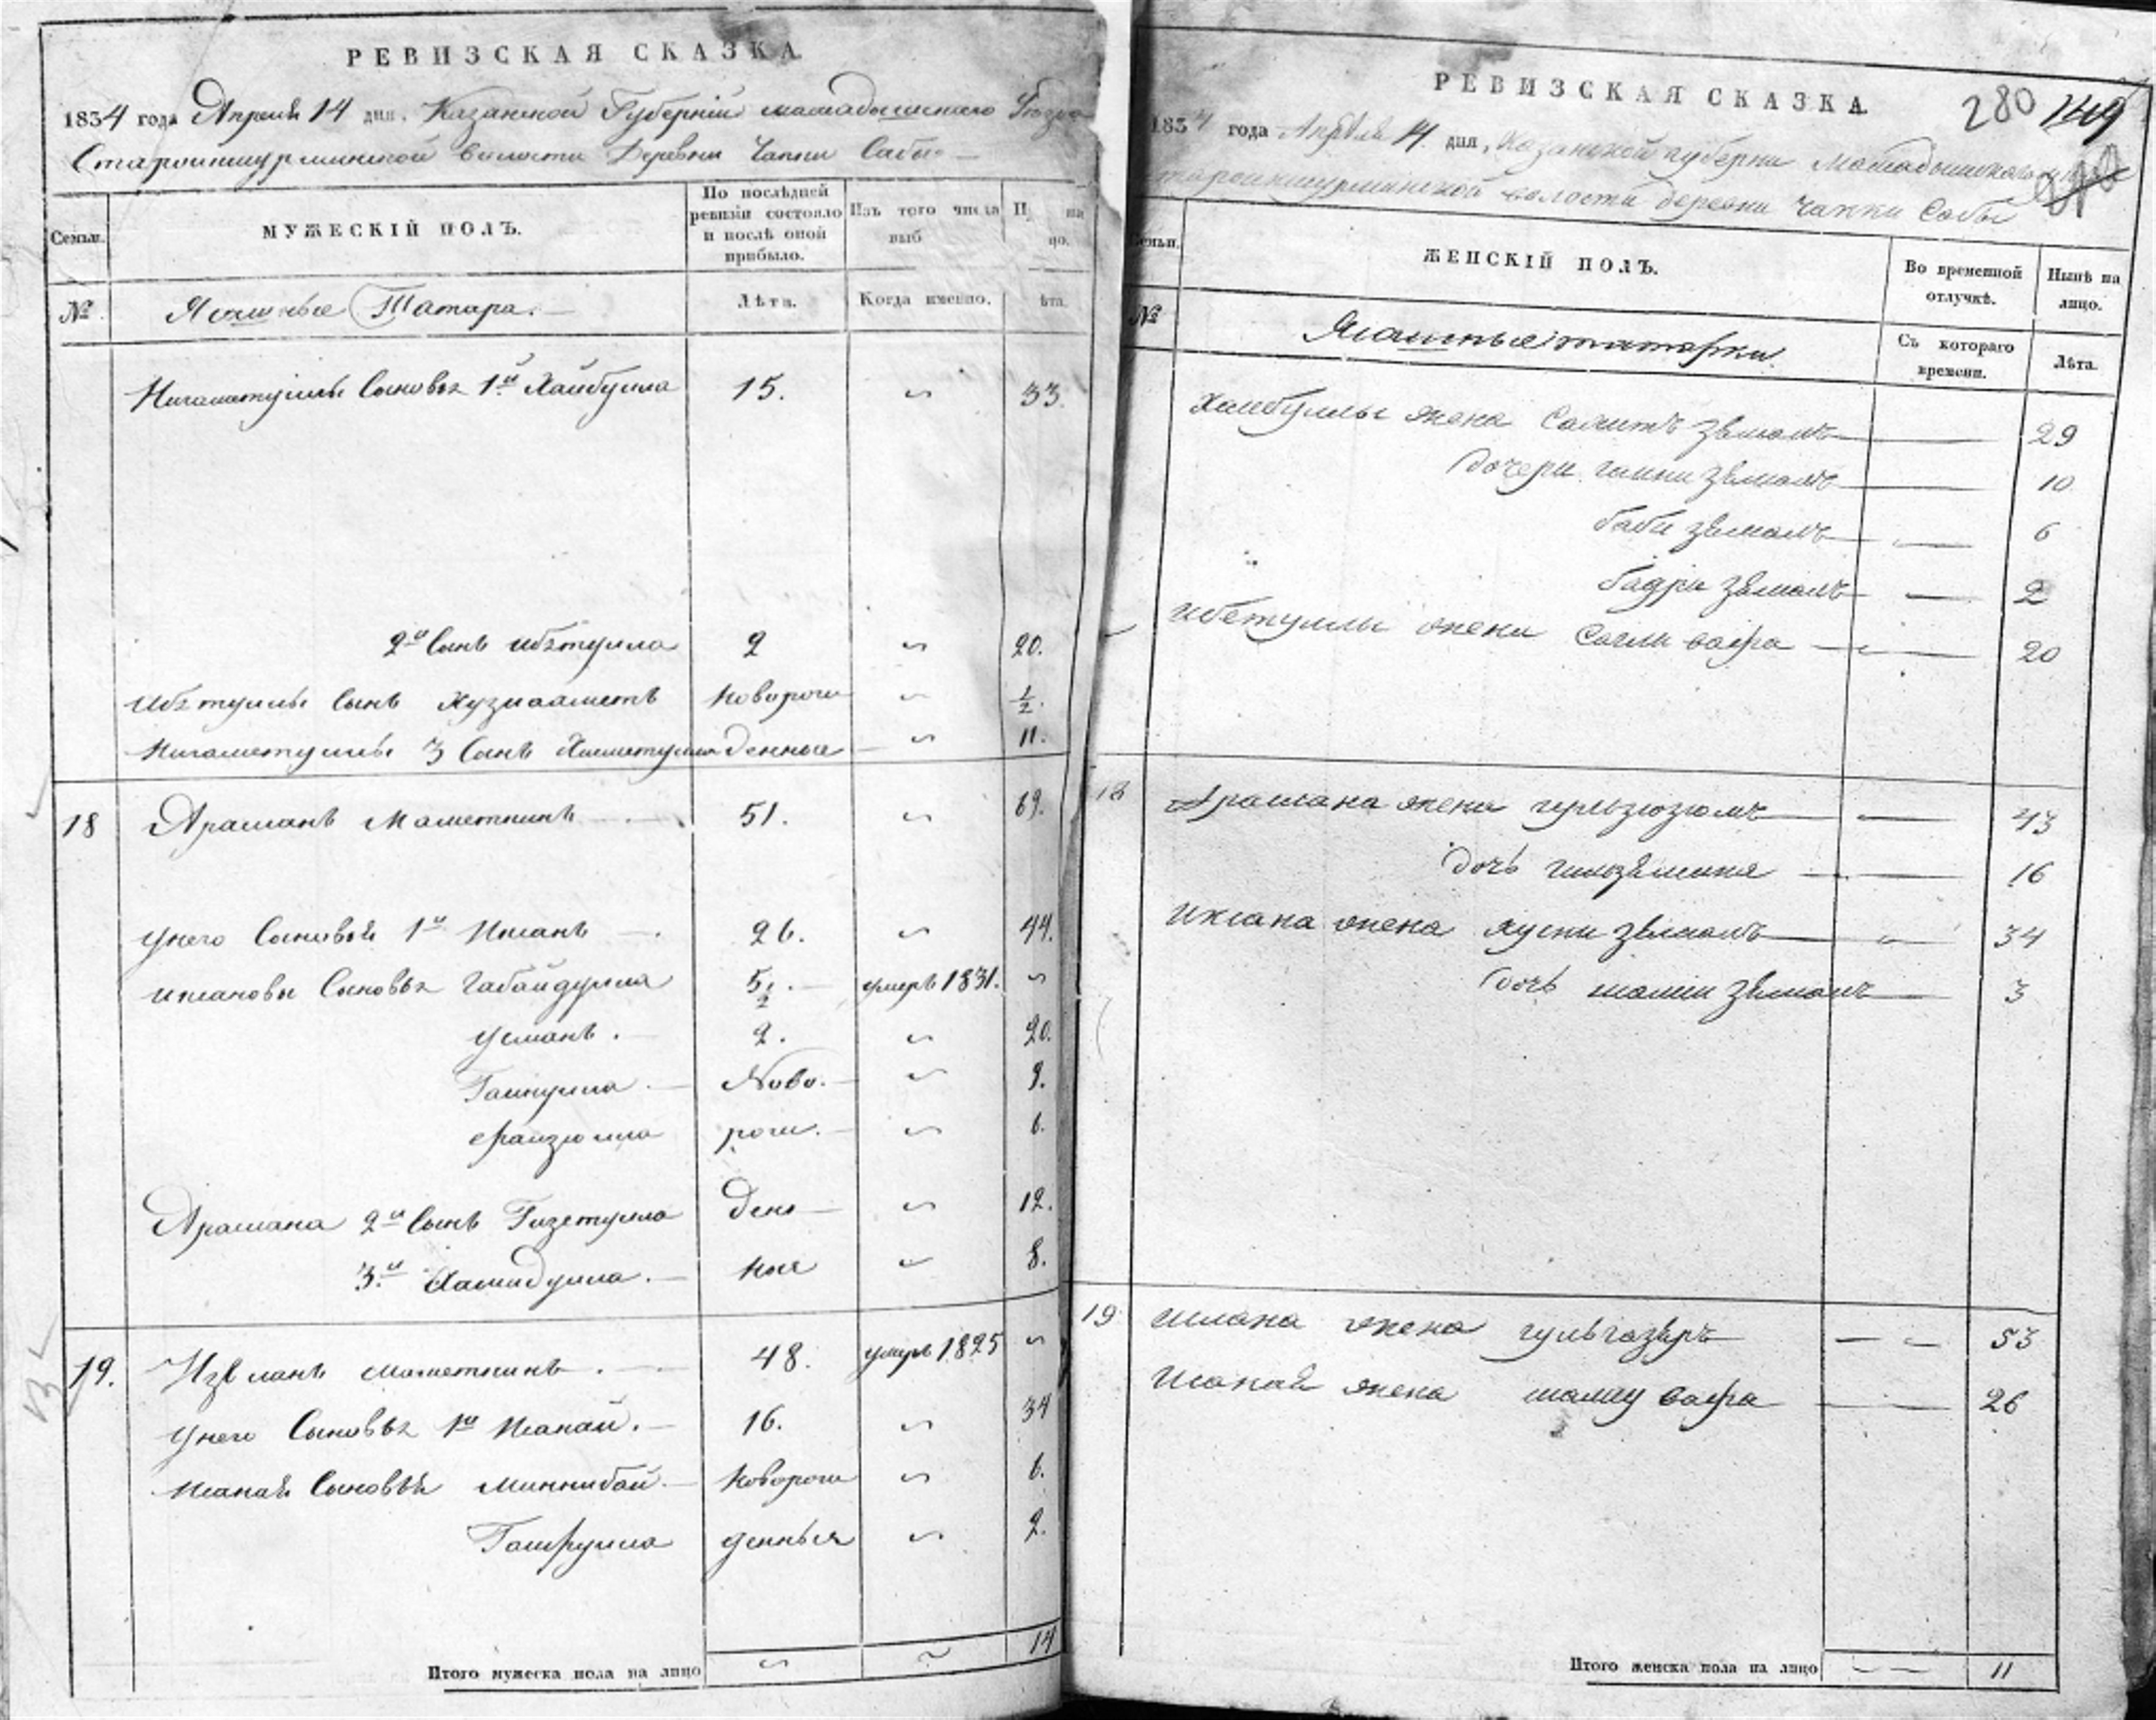 РЕВИЗСКАЯ СКАЗКА
1834 года Апреля 14 дня. Казанской Губернии мамадышскаго Уезда
Староикшурминской волости Деревни Чапки Сабы
Семьи. МУЖЕСКІЙ ПОЛЪ. По послѣдней ревизіи состояло и послѣ оной прибыло. Изъ того числа выб
№ Ясашные Татара. Лѣта. Когда именно. ѣта.
Нигаметуллы Сыновья 1й Хайбулла 15. 33.
2й Сынъ Ибетулла 2 20.
Ибетуллы Сынъ Хузиахметъ новорож 1/2.
Нигаметуллы 3 Сынъ Хисметулла денные 11.
18 Арасланъ Маметкинъ 51. 69.
У него Сыновей 1й Ихсанъ 26. 44.
Ихсановы Сыновья Габайдулла 5 1/2. умеръ 1831.
Усманъ. 2. 20.
Гайнулла Ново. 9.
Файзюлла рож. 6.
Араслана 2й Сынъ Гизетулла ден 12.
3й Хамидулла. ные 8.
19. Маметкинъ. 48. умеръ 1825
У него Сыновья 1й Исанай. 16. 34
Исаная Сыновья Миннибай новорож 6.
денныя 2.
Итого мужеска пола на лицо 14
РЕВИЗСКАЯ СКАЗКА 280 149
1834 года Апреля 14. дня, Казанской губерни Мамадышскаго
староикшурминской волости деревни Чапки Сабы
ЖЕНСКІЙ ПОЛЪ. Во временной отлучкѣ. Нынѣ на лицо.
№ Ясашныя татарки. Съ котораго времени. Лѣта.
Хайбуллы жена Сагитъ зямалъ 29
дочери 10
Баби зямалъ 6
Бадри зямалъ 2
Ибетуллы жена вафа 20
18 Араслана жена гульзюзюмъ 43
дочь 16
Ихсана жена Хусни зямалъ 34
дочь шамси зямалъ 3
19 жена гульгазяръ 53
Исаная жена вафа 26
Итого женска пола на лицо 11